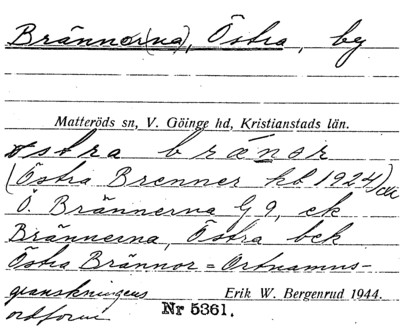 Brännor(na), Östra, by
Matteröds sn, V. Göinge hd, Kristianstads län.
östra bränor
(Östra Brenner kb 1924)
Ö. Brännerna G 9, ek
Brännerna, Östra bek
Östra Brännor = Ortnamns-
granskningens Erik W. Bergenrud 1944.
ordform Nr 5361.